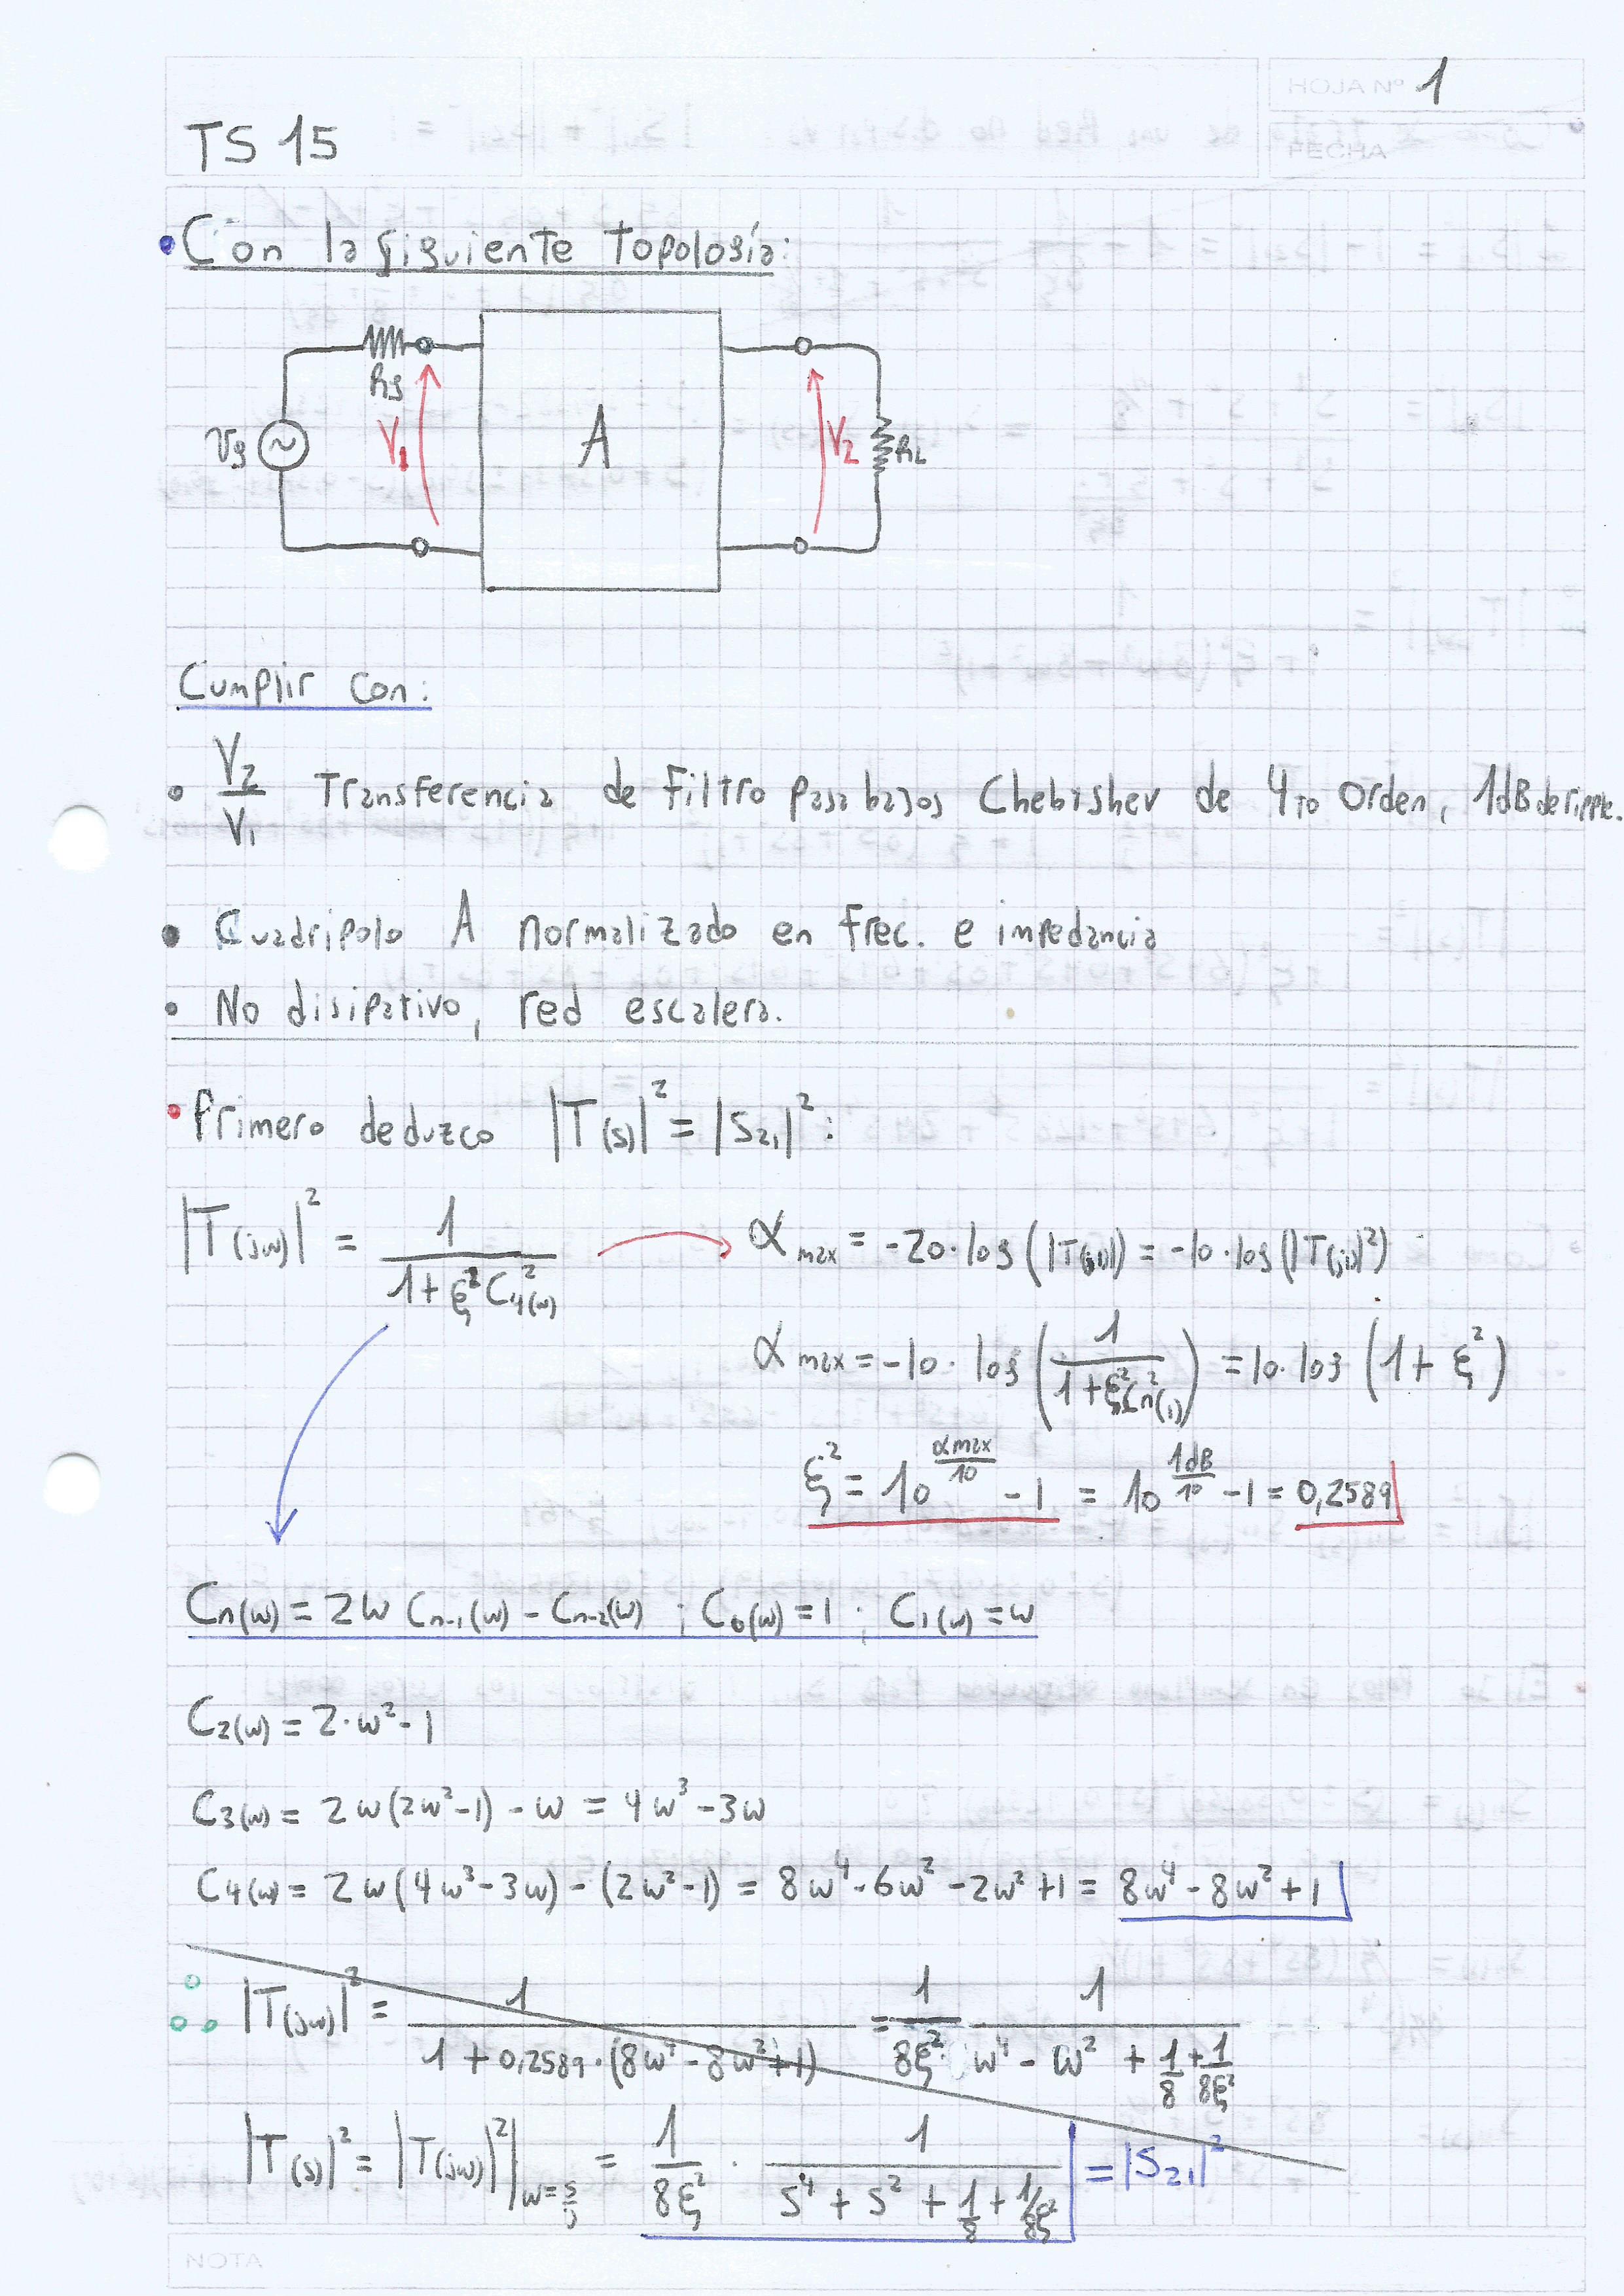 HOJA Nº 1
FECHA
TS 15
• Con la siguiente topología:
Rs
Vs V1 A V2 RL
Cumplir con:
• V2/V1 Transferencia de filtro pasabajos Chebishev de 4to Orden, 1dB de ripple.
• Cuadripolo A normalizado en frec. e impedancia
• No disipativo, red escalera.
• Primero deduzco |T(s)|² = |S21|²:
|T(jω)|² = 1/(1+ξ²C4²(ω)) → αmax = -20·log(|T(j1)|) = -10·log(|T(j1)|²)
αmax = -10·log(1/(1+ξ²Cn²(1))) = 10·log(1+ξ²)
ξ² = 10^(αmax/10) - 1 = 10^(1dB/10) - 1 = 0,2589
Cn(ω) = 2ω Cn-1(ω) - Cn-2(ω) ; C0(ω) = 1 ; C1(ω) = ω
C2(ω) = 2·ω² - 1
C3(ω) = 2ω(2ω²-1) - ω = 4ω³ - 3ω
C4(ω) = 2ω(4ω³-3ω) - (2ω²-1) = 8ω⁴ - 6ω² - 2ω² + 1 = 8ω⁴ - 8ω² + 1
∴ |T(jω)|² = 1/(1+0,2589·(8ω⁴-8ω²+1)) = 1/(8ξ²) 1/(ω⁴ - ω² + 1/8 + 1/(8ξ²))
|T(s)|² = |T(jω)|²|ω=s/j = 1/(8ξ²) · 1/(s⁴ + s² + 1/8 + 1/(8ξ²)) = |S21|²
NOTA